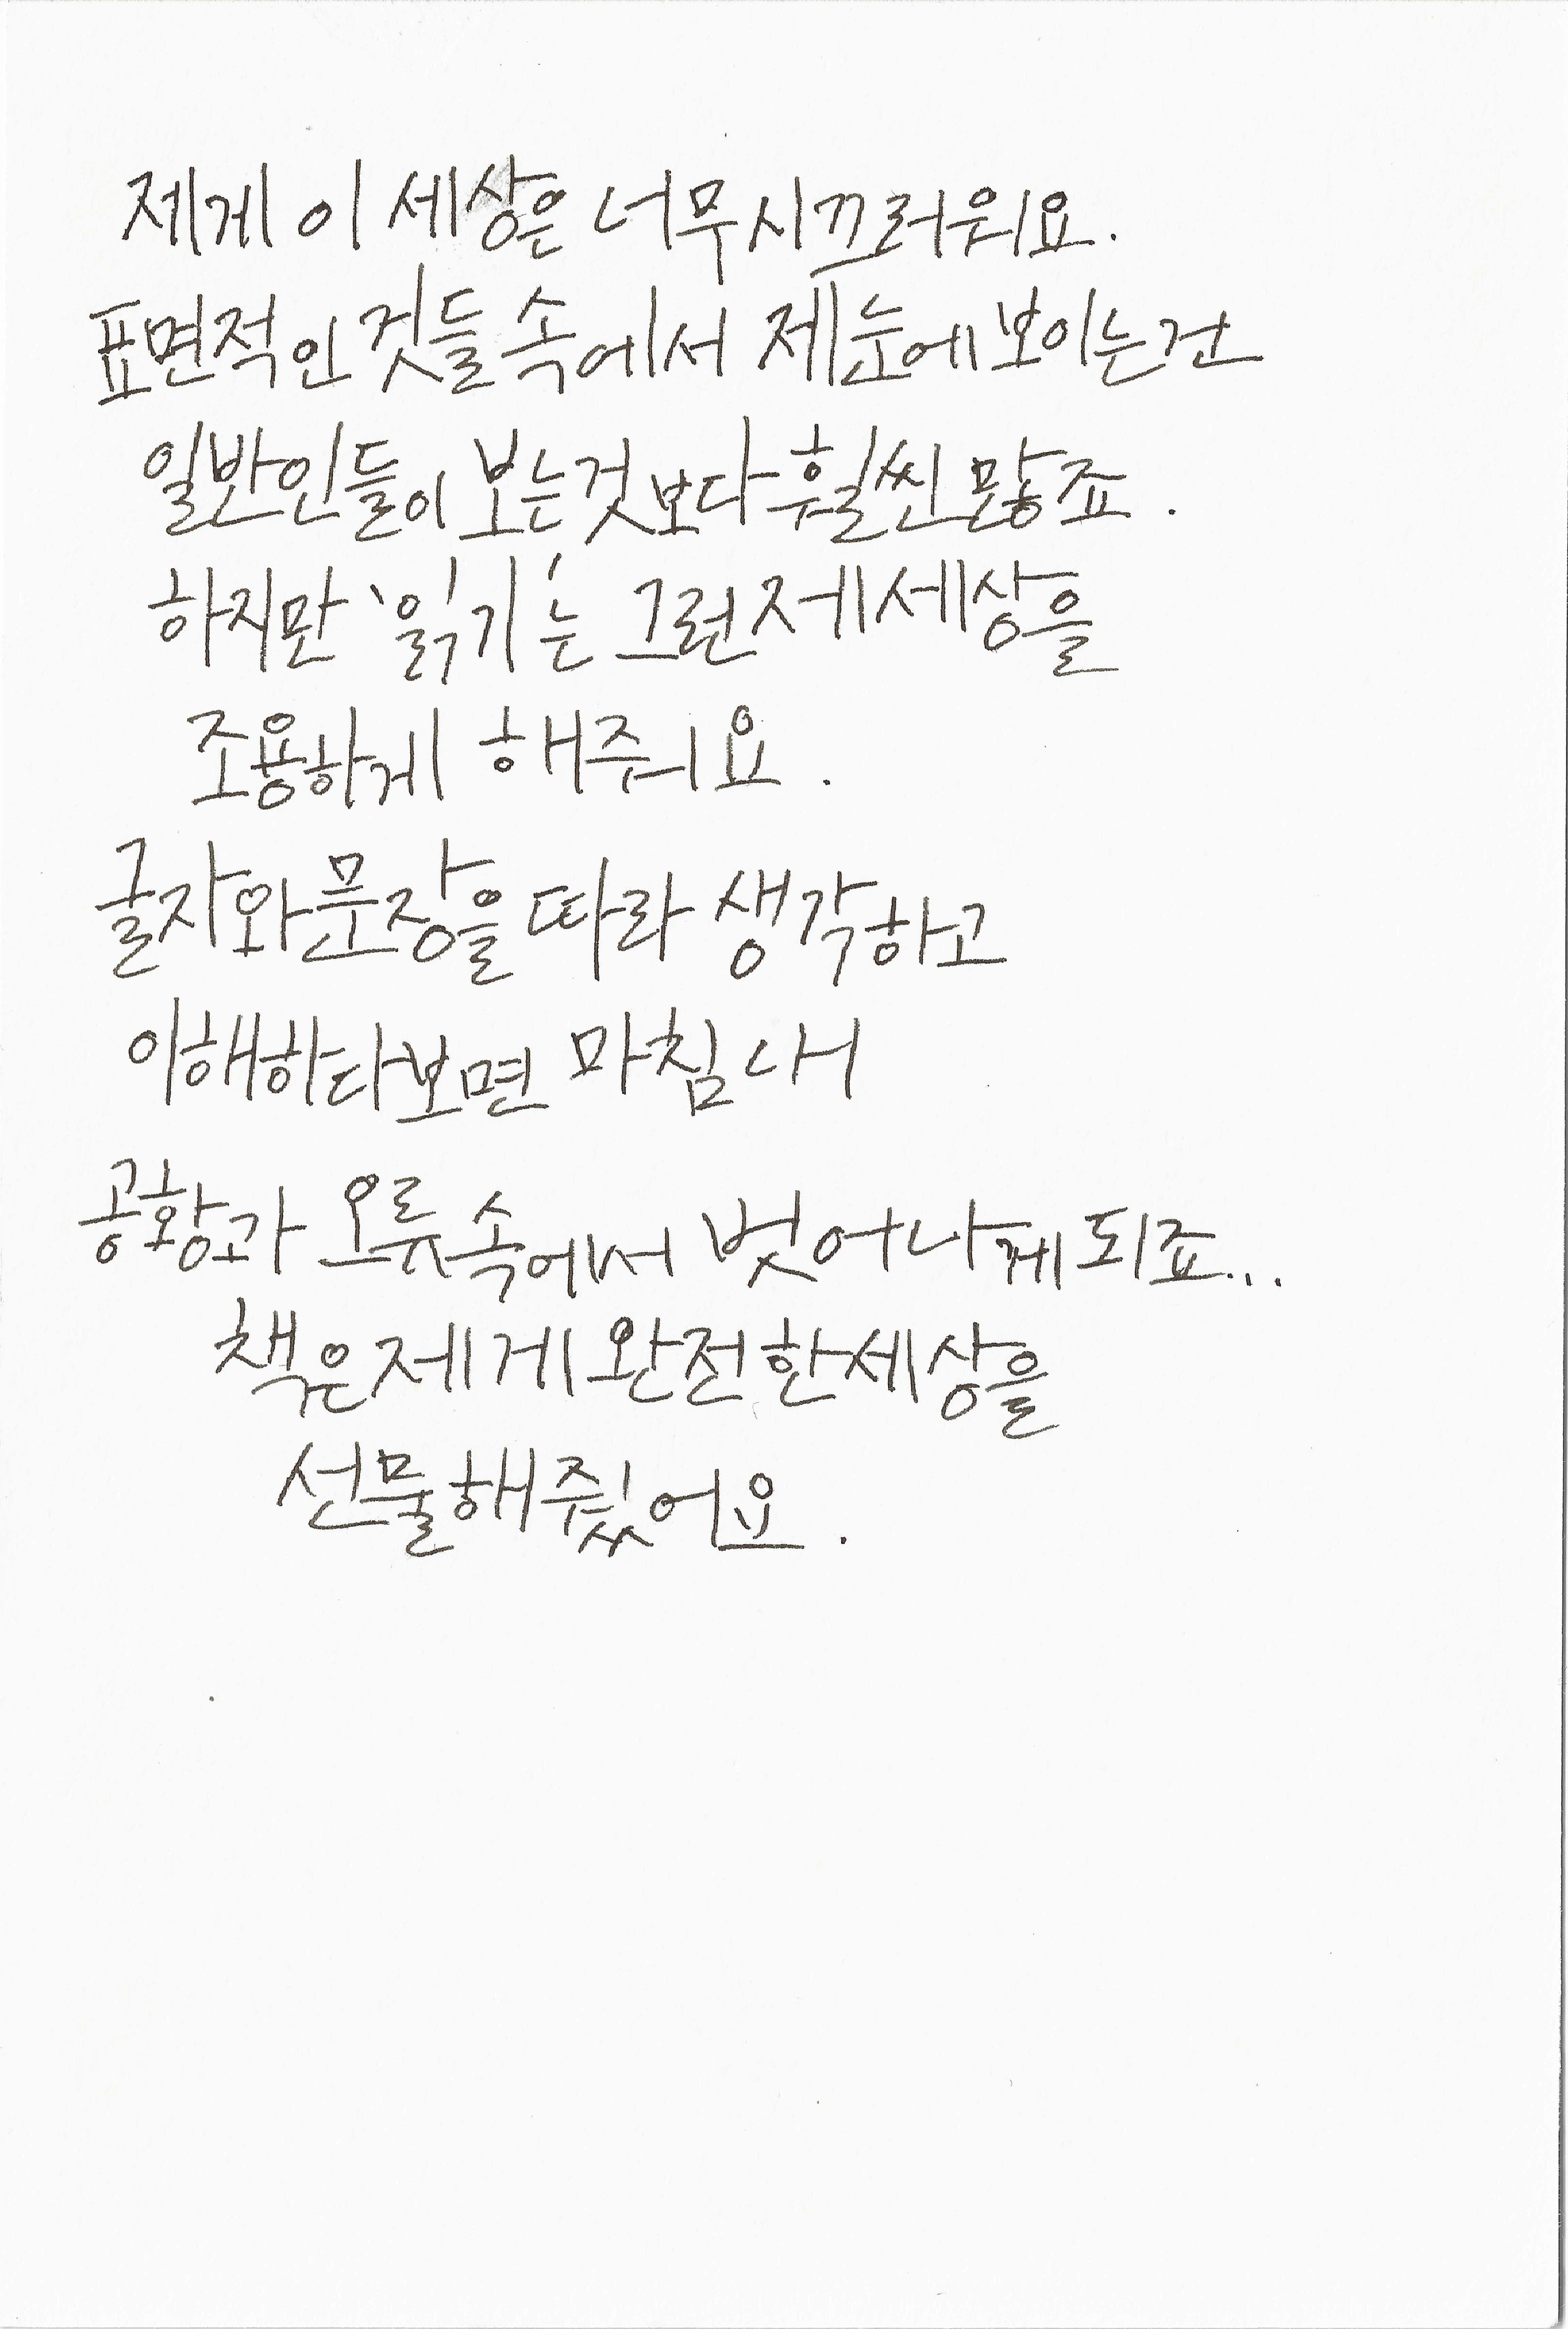 제게 이 세상은 너무 시끄러워요.
표면적인 것들 속에서 제 눈에 보이는 건
일반인들이 보는 것보다 훨씬 많죠.
하지만 '읽기'는 그런 제 세상을
조용하게 해줘요.
글자와 문장을 따라 생각하고
이해하다보면 마침내
공황과 오류 속에서 벗어나게 되죠...
책은 제게 완전한 세상을
선물해줬어요.